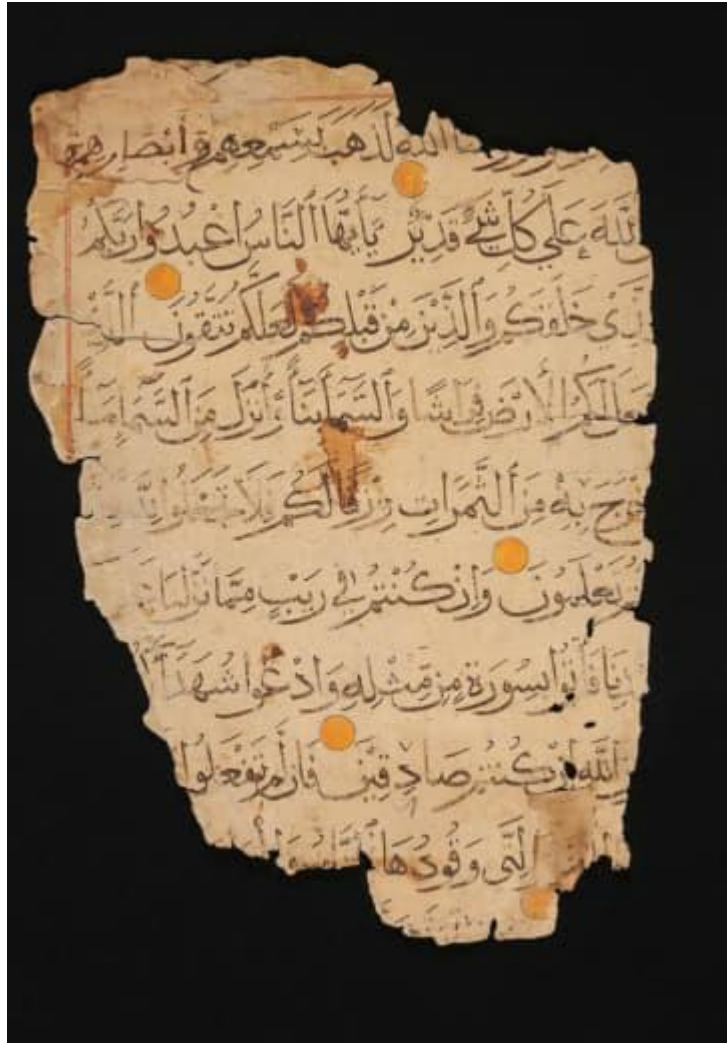 الله لذهب بسمعهم وأبصارهم
اللَّهَ عَلَى كُلِّ شَيْءٍ قَدِيْرٌ يَا أَيُّهَا ٱلنَّاسُ اعْبُدُوا رَبَّكُمُ
الَّذِىْ خَلَقَكُمْ وَٱلَّذِيْنَ مِنْ قَبْلِكُمْ لَعَلَّكُمْ تَتَّقُونَ الَّذِىْ
جَعَلَ لَكُمُ الْأَرْضَ فِرَاشًا وَٱلسَّمَآءَ بِنَآءً وَأَنْزَلَ مِنَ ٱلسَّمَآءِ مَآءً
فَأَخْرَجَ بِهِ مِنَ ٱلثَّمَرَاتِ رِزْقًا لَكُمْ فَلَا تَجْعَلُوا لِلَّهِ
تَعْلَمُونَ وَإِنْ كُنْتُمْ فِي رَيْبٍ مِمَّا نَزَّلْنَا
فَأْتُوا بِسُورَةٍ مِنْ مِثْلِهِ وَادْعُوا شُهَدَآءَ
اللَّهِ إِنْ كُنْتُمْ صَادِقِيْنَ فَإِنْ لَمْ تَفْعَلُوا
الَّتِى وَقُودُهَا ٱلنَّاسُ